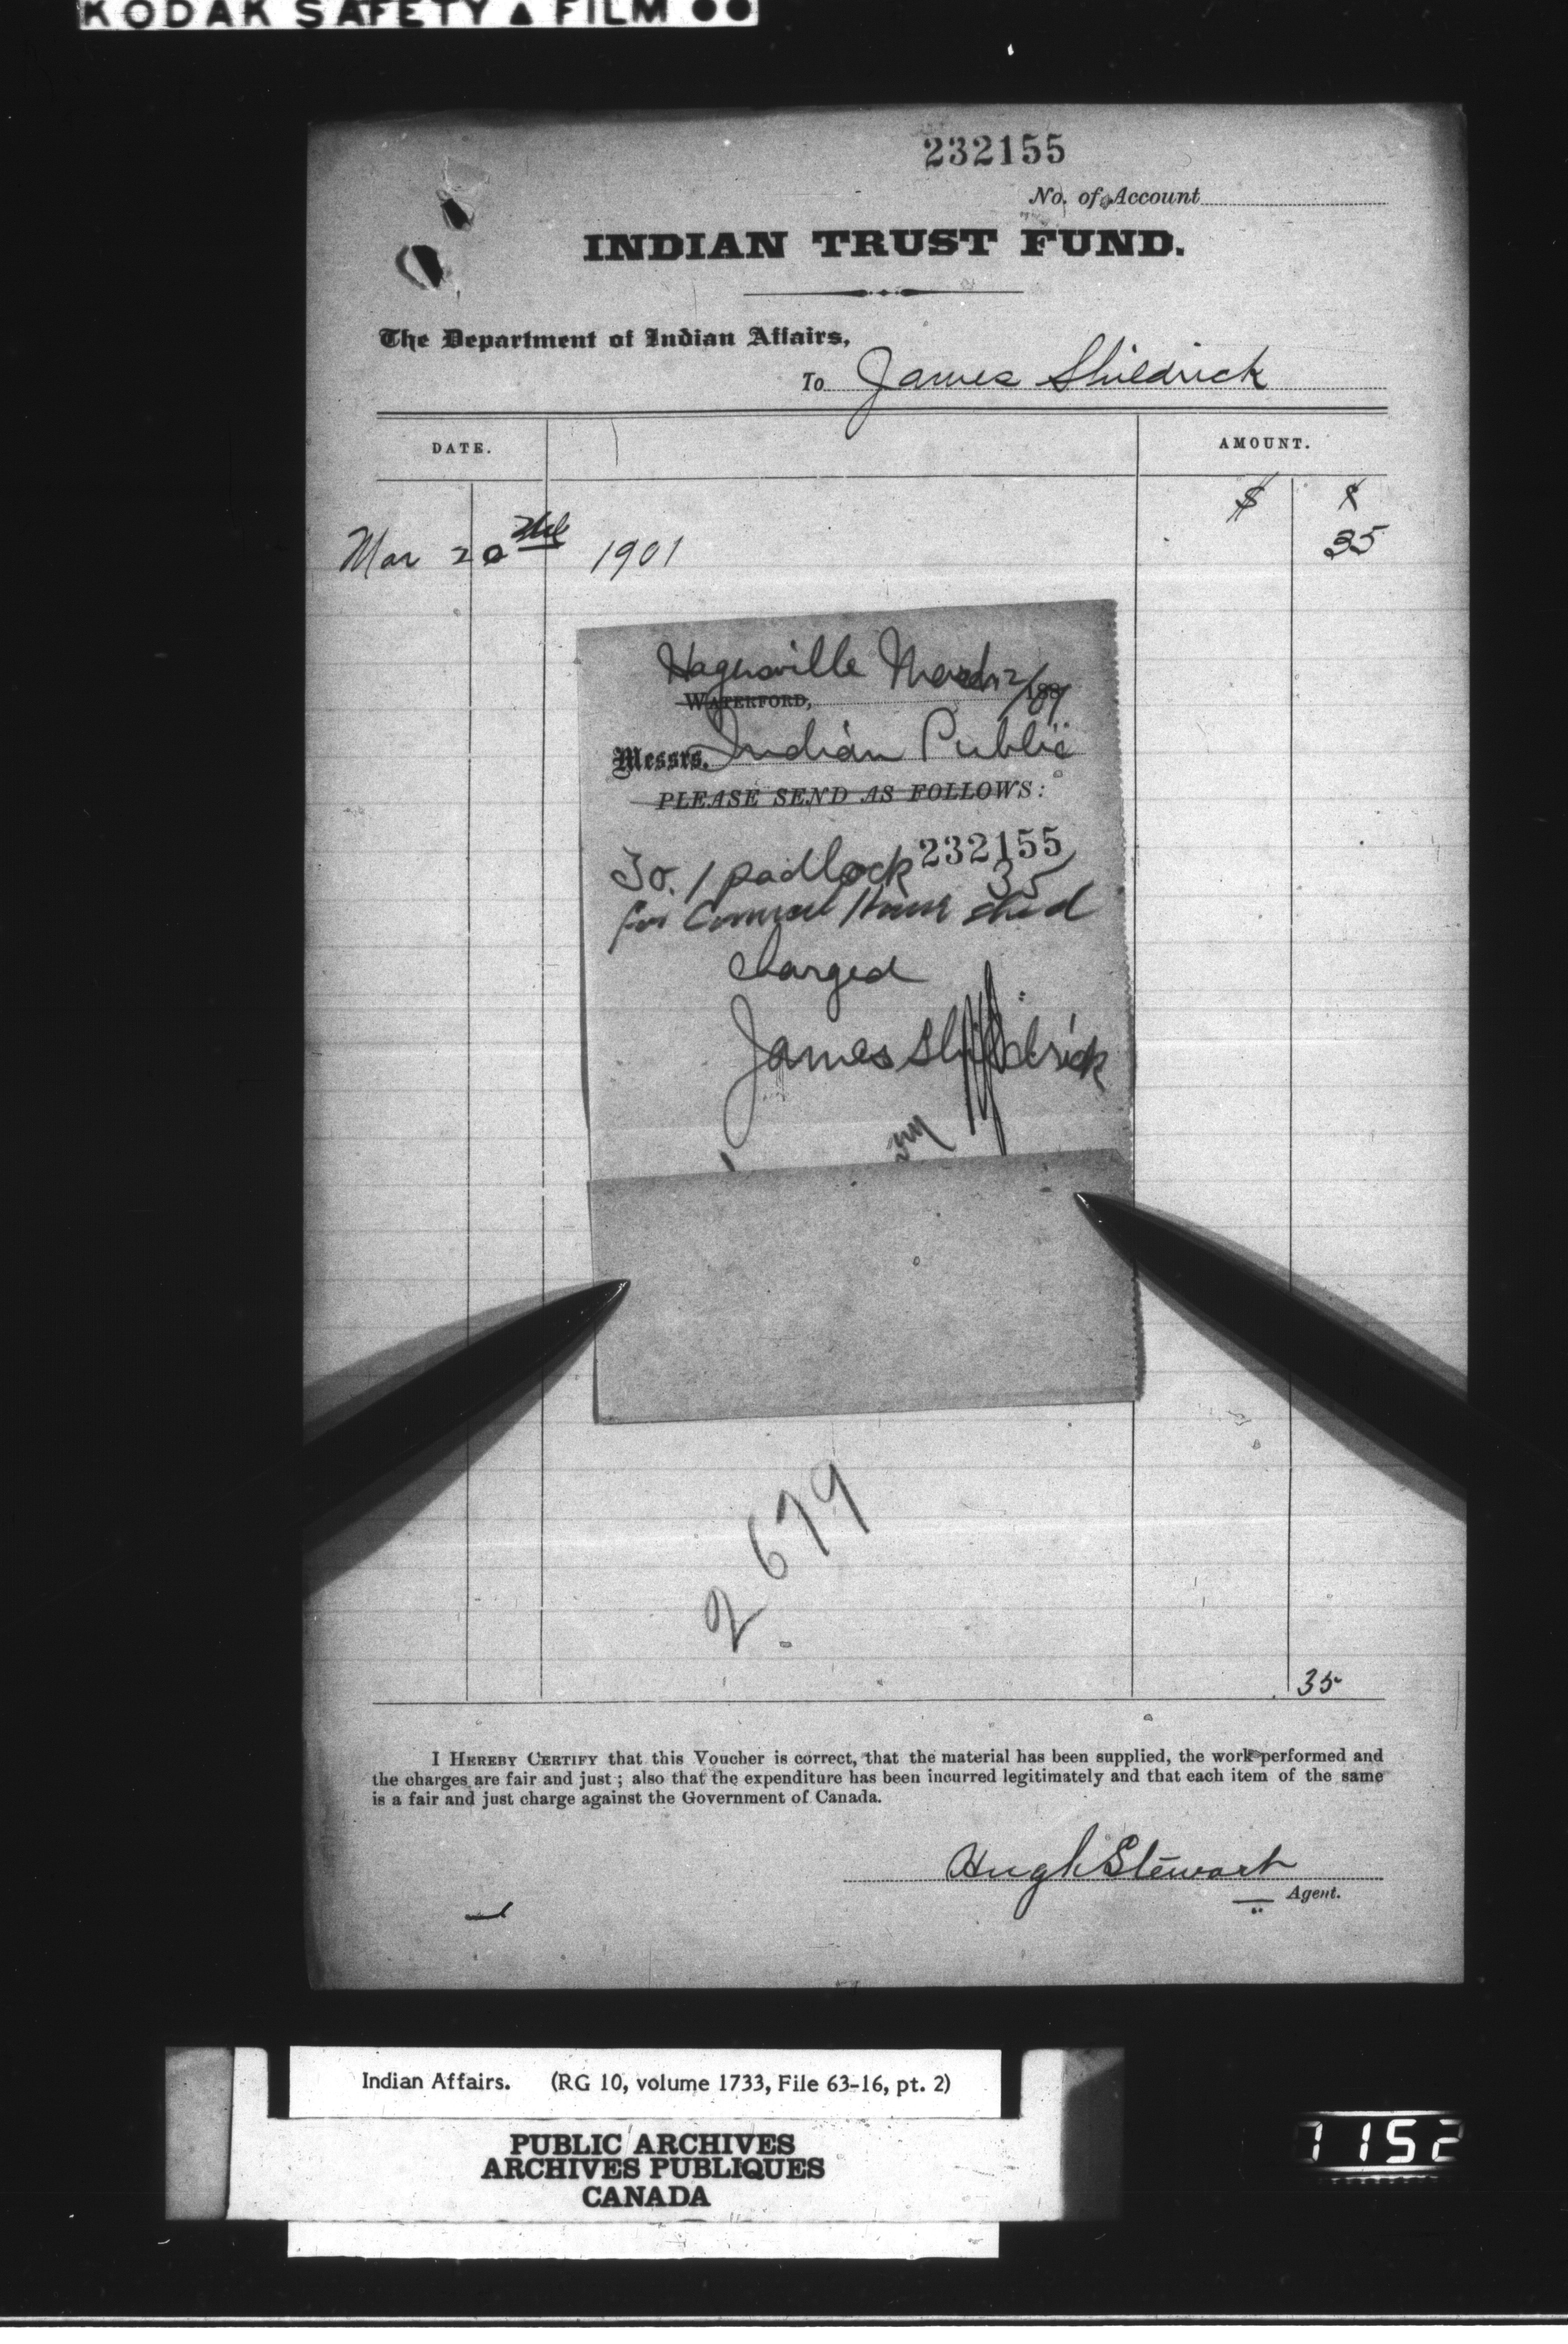 KODAK SAFETY ▲ FILM ●●
232155
No. of Account
INDIAN TRUST FUND.
The Department of Indian Affairs,
To James Shildrick
DATE.
AMOUNT.
$
Mar 20th 1901
35
Hagersville March 12/
WATERFORD,
Messrs. Indian Public
PLEASE SEND AS FOLLOWS:
232155
To. 1 padlock 35
for Council House shed
charged
James Shildrick
2679
35
I HEREBY CERTIFY that this Voucher is correct, that the material has been supplied, the work performed and
the charges are fair and just; also that the expenditure has been incurred legitimately and that each item of the same
is a fair and just charge against the Government of Canada.
Hugh Stewart
Agent.
Indian Affairs. (RG 10, volume 1733, File 63-16, pt. 2)
PUBLIC ARCHIVES
ARCHIVES PUBLIQUES
CANADA
1152